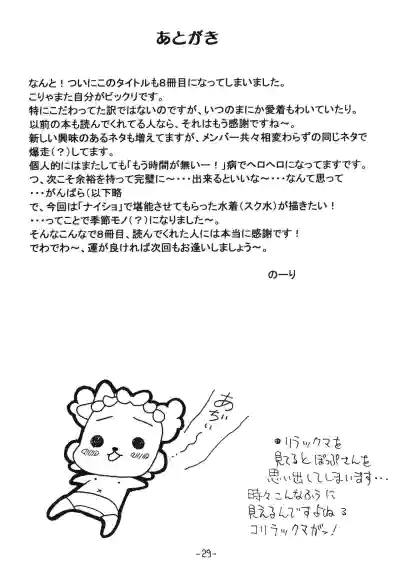 あとがき
なんと！ついにこのタイトルも８冊目になってしまいました。
こりゃまた自分がビックリです。
特にこだわってた訳ではないのですが、いつのまにか愛着もわいていたり。
以前の本も読んでくれてる人なら、それはもう感謝ですね～。
新しい興味のあるネタも増えてますが、メンバー共々相変わらずの同じネタで
爆走（？）してます。
個人的にはまたしても「もう時間が無いー！」病でヘロヘロになってますです。
つ、次こそ余裕を持って完璧に～・・・出来るといいな～・・・なんて思って
・・・がんばら（以下略
で、今回は「ナイショ」で堪能させてもらった水着（スク水）が描きたい！
・・・ってことで季節モノ（？）になりました～。
そんなこんなで８冊目、読んでくれた人には本当に感謝です！
でわでわ～、運が良ければ次回もお逢いしましょう～。
のーり
あぢぃぃ
●リラックマを
見てるとぽっぷさんを
思い出してしまいます・・・
時々こんなふうに
見えるんですよねぇ
コリラックマがッ！
-29-